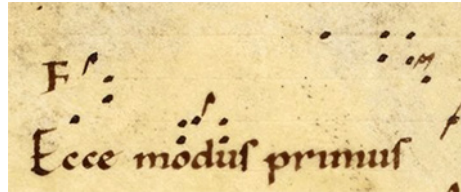 F
Ecce modus primus